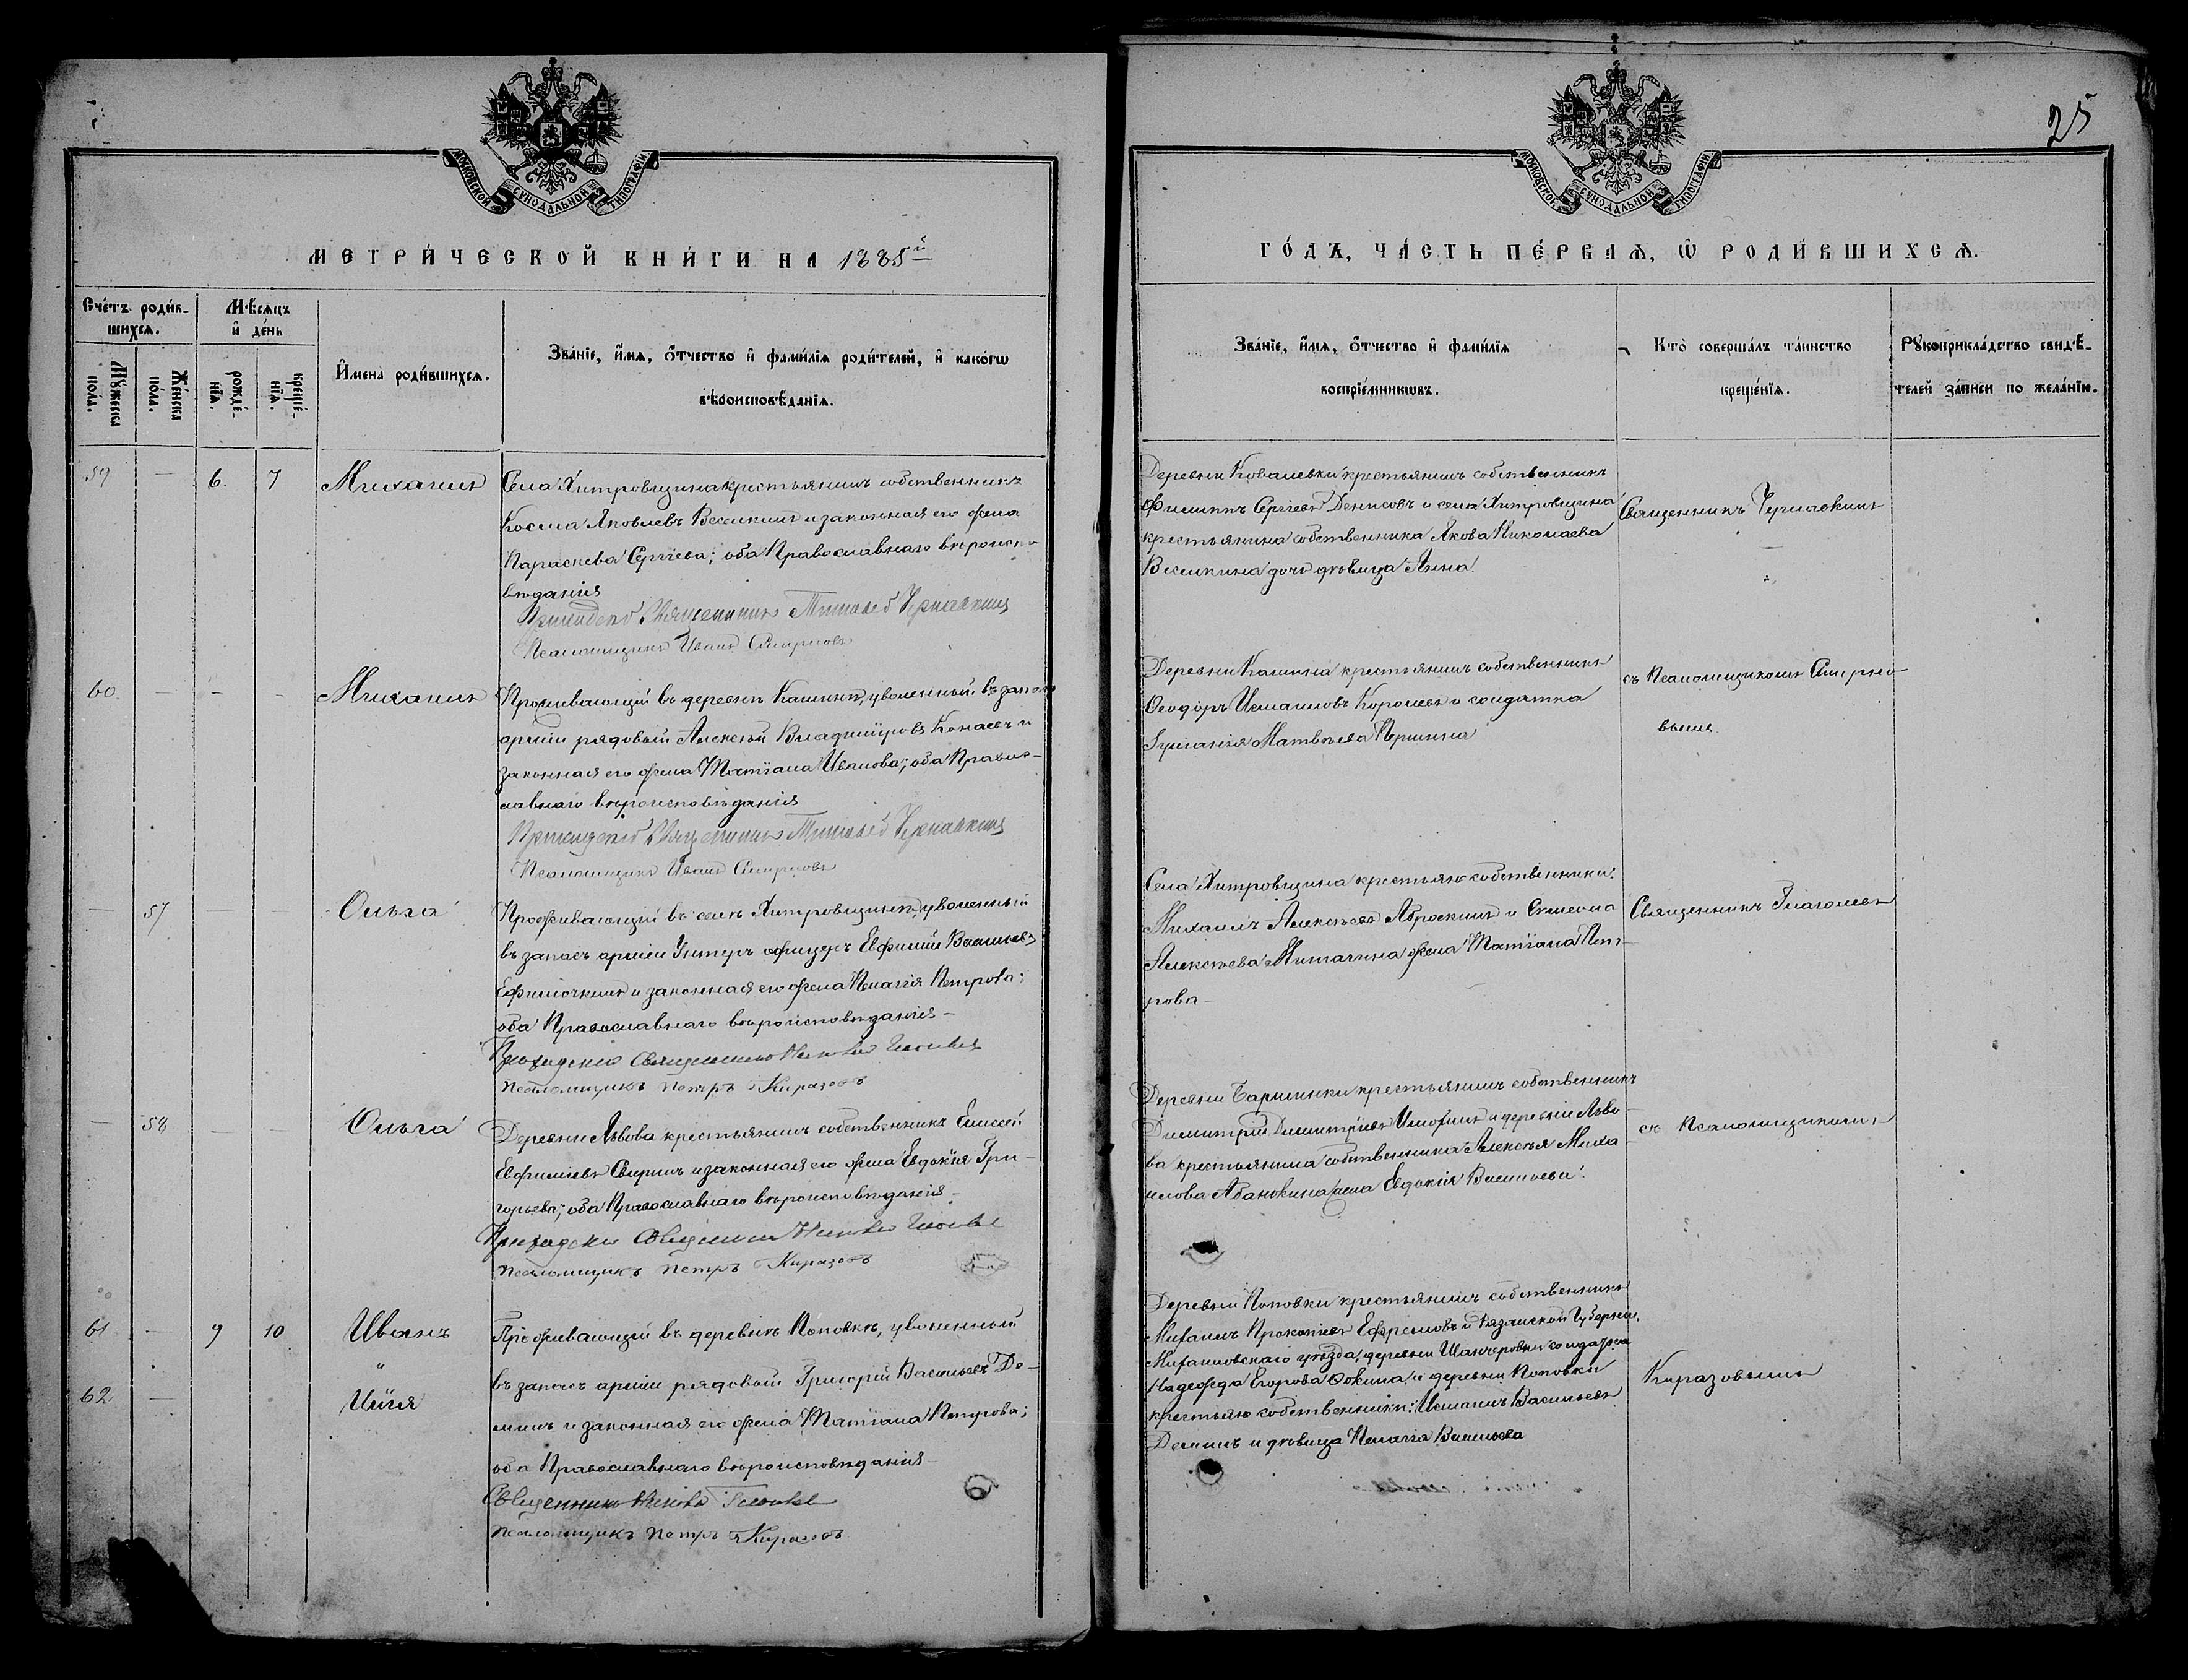 МОСКОВСКОЙ СУНОДАЛЬНОЙ ТИПОГРАФІИ
МЕТРИ́ЧЕСКОЙ КНИ́ГИ НА 1885й
Сче́тъ роди́в-
шихся.
Мѣ́сяцъ
и҆ де́нь
Му́жеска
по́ла.
Же́нска
по́ла.
рожде́-
нїя.
креще́-
нїя.
И҆мена̀ роди́вшихся.
Зва́нїе, и҆́мя, ѻ҆́тчество и҆ фами́лїя роди́телей, и҆ како́гѡ
вѣроисповѣ́данїя.
59 — 6. 7 Михаилъ
Села Хитровщина крестьянинъ собственникъ
Косма Яковлевъ Веселкинъ и законная его жена
Параскева Сергіева; оба Православнаго вѣроиспо-
вѣданія
Приходскій Священникъ Тимофей Чернавкинъ
Псаломщикъ Иванъ Смирновъ
60. — — — Михаилъ
Проживающій въ деревнѣ Кашинѣ, уволенный въ запасъ
арміи рядовый Алексѣй Владиміровъ Конаевъ и
законная его жена Татіана Иванова; оба Правос-
лавнаго вѣроисповѣданія
Приходскій Священникъ Тимофей Чернавкинъ
Псаломщикъ Иванъ Смирновъ
— 57 — — Ольга
Проживающій въ селѣ Хитровщинѣ, уволенный
въ запасъ арміи Унтеръ офицеръ Евфимій Васильевъ
Ефимочкинъ и законная его жена Пелагія Петрова;
оба Православнаго вѣроисповѣданія —
Приходскій Священникъ
Псаломщикъ Петръ Киразовъ
— 58 — — Ольга
Деревни Львова крестьянинъ собственникъ Елисей
Евфиміевъ Свиринъ и законная его жена Евдокія Гри-
горьева; оба Православнаго вѣроисповѣданія —
Приходскій Священникъ
Псаломщикъ Петръ Киразовъ
61 — 9 10 Иванъ
и
62 — Илія
Проживающій въ деревнѣ Поповкѣ, уволенный
въ запасъ арміи рядовый Григорій Васильевъ Де-
минъ и законная его жена Татіана Петрова;
оба Православнаго вѣроисповѣданія —
Священникъ
Псаломщикъ Петръ Киразовъ
25
МОСКОВСКОЙ СУНОДАЛЬНОЙ ТИПОГРАФІИ
ГО́ДЪ, ЧА́СТЬ ПЕ́РВАЯ, Ѡ҆ РОДИ́ВШИХСЯ.
Зва́нїе, и҆́мя, ѻ҆́тчество и҆ фами́лїя
воспрїе́мникѡвъ.
Кто̀ соверша́лъ та́инство
креще́нїя.
Рꙋкоприкла́дство свидѣ́-
телей за́писи по жела́нїю.
Деревни Ковалевки крестьянинъ собственникъ
Филиппъ Сергѣевъ Денисовъ и села Хитровщина
крестьянина собственника Якова Николаева
Веселкина дочь дѣвица Анна.
Священникъ Чернавкинъ
Деревни Кашина крестьянинъ собственникъ
Ѳеодоръ Исмаиловъ Королевъ и солдатка
Матвѣева Першина
съ Псаломщикомъ Смирно-
вымъ
Села Хитровщина крестьяне собственники:
Михаилъ Алексѣевъ Аброскинъ и Симеона
Алексѣева Жена Татіана Пет-
рова —
Священникъ Глаголевъ
Деревни Баршинки крестьянинъ собственникъ
Димитрій Димитріевъ и деревни Льво-
ва крестьянина собственника Алексѣя Миха-
илова Абанокина жена Евдокія Васильева.
съ Псаломщикомъ
Деревни Поповки крестьянинъ собственникъ
Михаилъ Прокопіевъ Ефремовъ и Рязанской Губерніи,
Михайловскаго уѣзда, деревни солдатка
Надежда Егорова Ѳокина и деревни Поповки
крестьяне собственники: Исмаилъ Васильевъ
Деминъ и дѣвица Пелагія Васильева
Киразовымъ